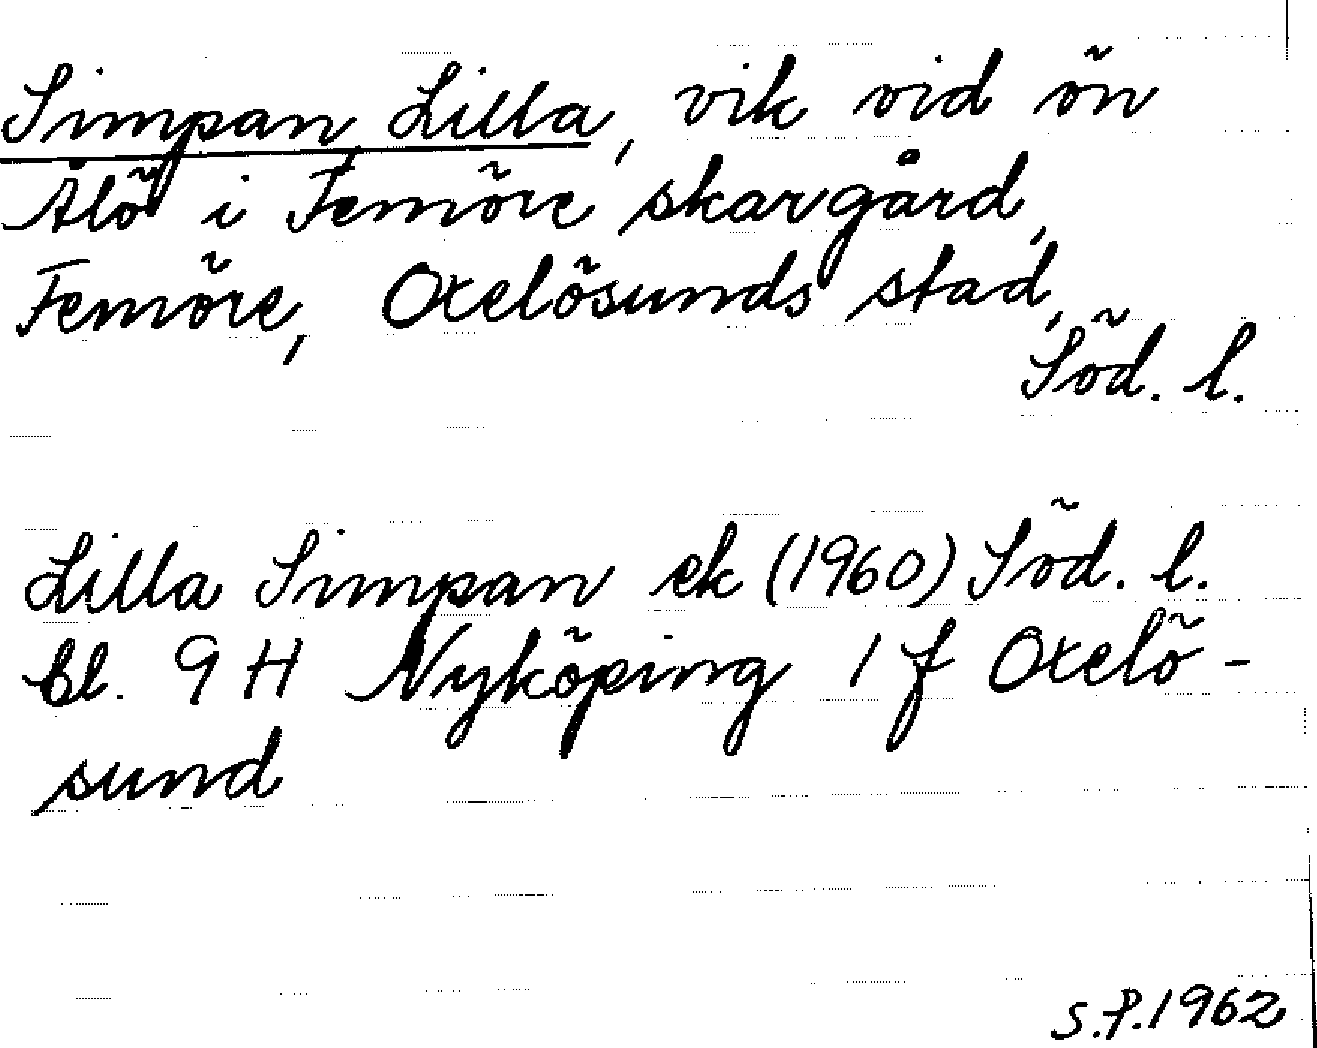 Simpan Lilla, vik vid ön
Ålö i Femöre skärgård,
Femöre, Oxelösunds stad,
Söd. l.
Lilla Simpan ek (1960) Söd. l.
bl. 9 H Nyköping 1 f Oxelö-
sund
S.P.1962